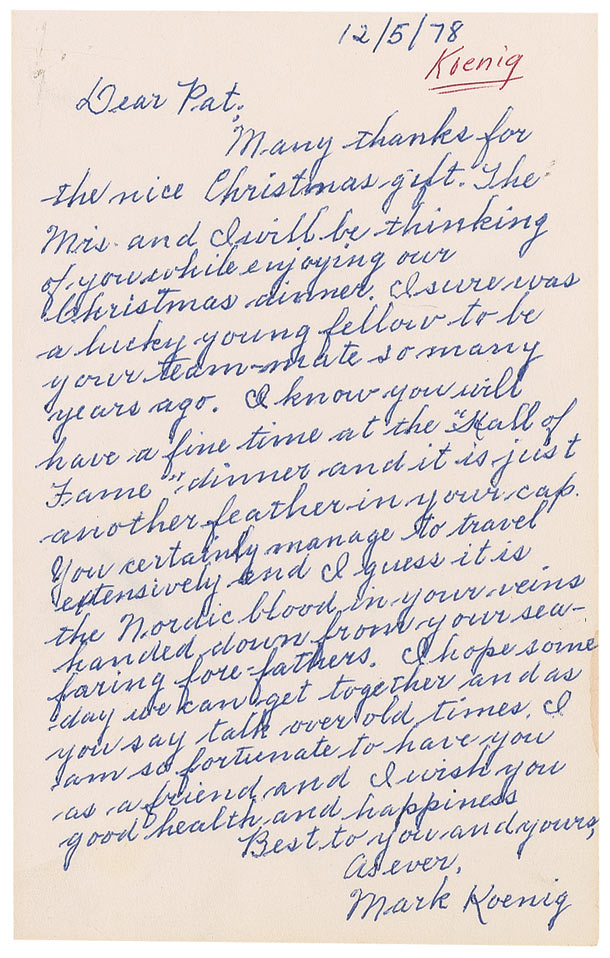 12/5/78
Koenig
Dear Pat:
Many thanks for
the nice Christmas gift. The
Mrs. and I will be thinking
of you while enjoying our
Christmas dinner. I sure was
a lucky young fellow to be
your team-mate so many
years ago. I know you will
have a fine time at the "Hall of
Fame" dinner and it is just
another feather in your cap.
You certainly manage to travel
extensively and I guess it is
the Nordic blood in your veins
handed down from your sea-
faring fore-fathers. I hope some
day we can get together and as
you say talk over old times. I
am so fortunate to have you
as a friend and I wish you
good health and happiness
Best to you and yours,
As ever,
Mark Koenig